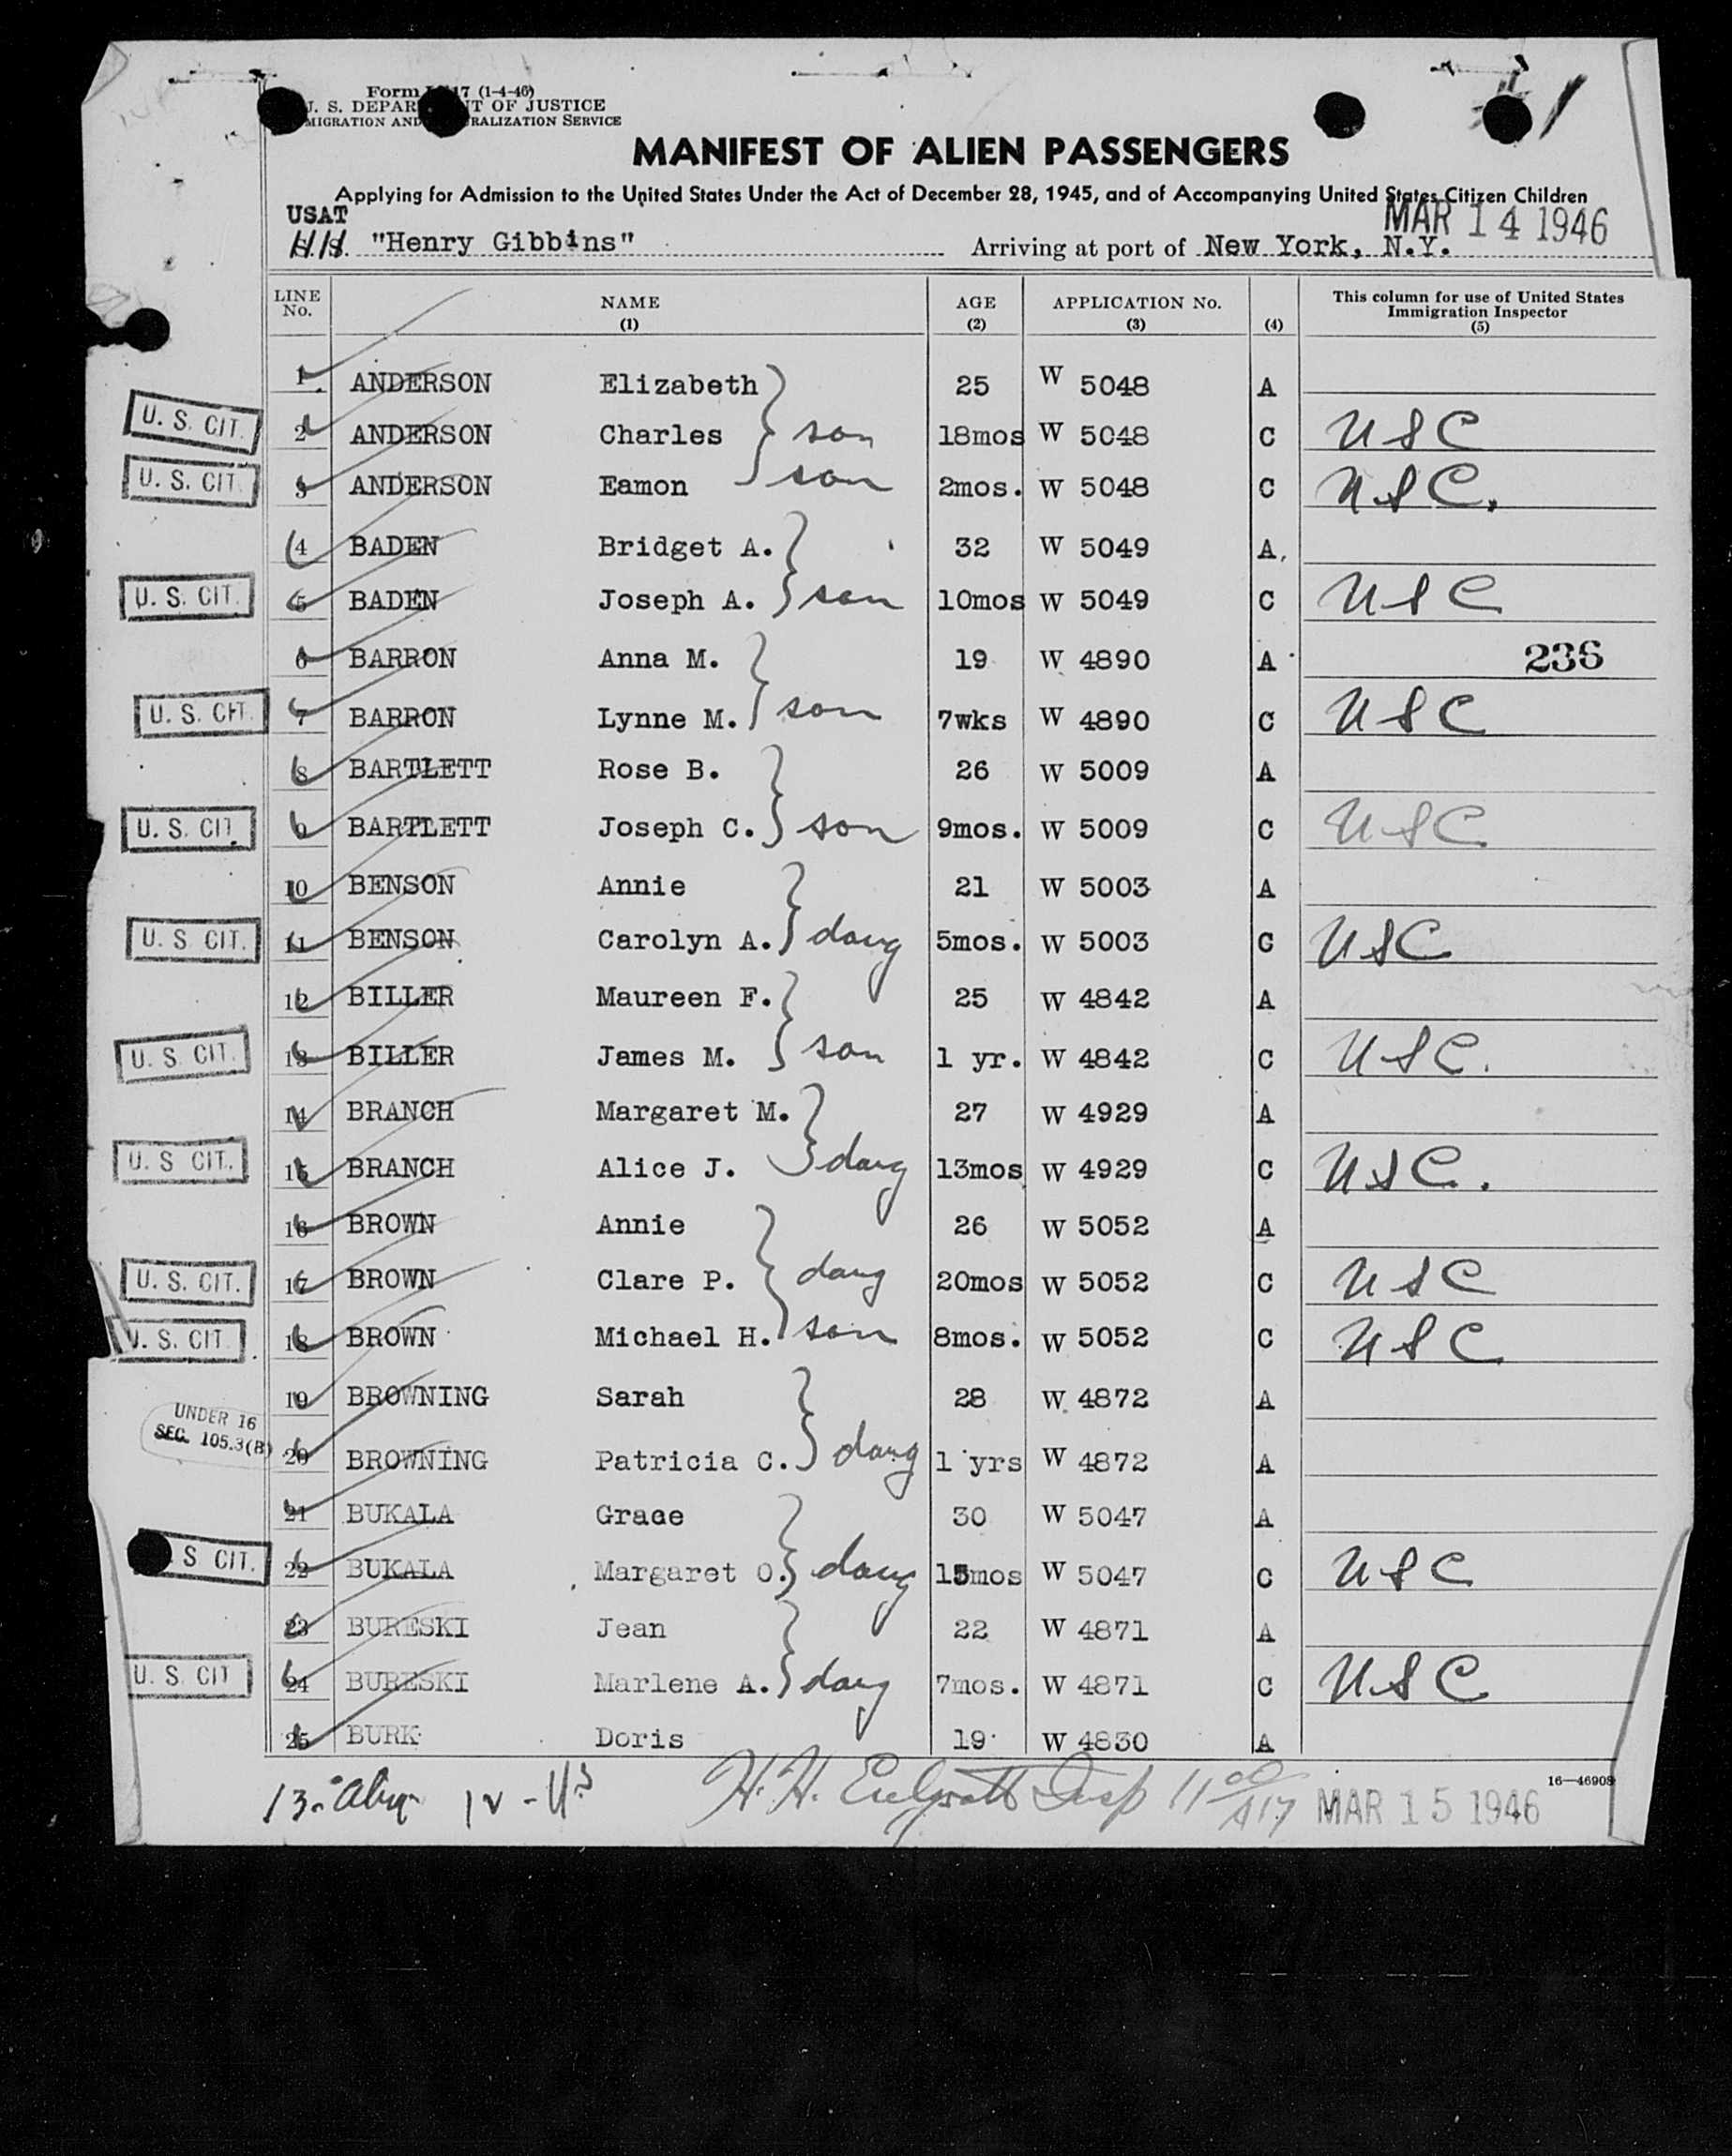 #1
Form 17 (1-4-46)
U. S. DEPAR T OF JUSTICE
MIGRATION AND RALIZATION SERVICE
MANIFEST OF ALIEN PASSENGERS
Applying for Admission to the United States Under the Act of December 28, 1945, and of Accompanying United States Citizen Children
USAT MAR 14 1946
S.S. "Henry Gibbins" Arriving at port of New York, N.Y.
LINE No. NAME (1) AGE (2) APPLICATION No. (3) (4) This column for use of United States Immigration Inspector (5)
1 ANDERSON Elizabeth 25 W 5048 A
U. S. CIT. 2 ANDERSON Charles son 18mos W 5048 C USC
U. S. CIT. 3 ANDERSON Eamon son 2mos. W 5048 C USC.
4 BADEN Bridget A. 32 W 5049 A
U. S. CIT. 5 BADEN Joseph A. son 10mos W 5049 C USC
6 BARRON Anna M. 19 W 4890 A 236
U. S. CIT. 7 BARRON Lynne M. son 7wks W 4890 C USC
8 BARTLETT Rose B. 26 W 5009 A
U. S. CIT. 9 BARTLETT Joseph C. son 9mos. W 5009 C USC
10 BENSON Annie 21 W 5003 A
U. S CIT. 11 BENSON Carolyn A. daug 5mos. W 5003 C USC
12 BILLER Maureen F. 25 W 4842 A
U. S. CIT. 13 BILLER James M. son 1 yr. W 4842 C USC.
14 BRANCH Margaret M. 27 W 4929 A
U. S CIT. 15 BRANCH Alice J. daug 13mos W 4929 C USC.
16 BROWN Annie 26 W 5052 A
U. S. CIT. 17 BROWN Clare P. daug 20mos W 5052 C USC
U. S. CIT. 18 BROWN Michael H. son 8mos. W 5052 C USC
19 BROWNING Sarah 28 W 4872 A
UNDER 16
SEC. 105.3(B) 20 BROWNING Patricia C. daug 1 yrs W 4872 A
21 BUKALA Grace 30 W 5047 A
S CIT. 22 BUKALA Margaret O. daug 15mos W 5047 C USC
23 BURESKI Jean 22 W 4871 A
U. S. CIT 24 BURESKI Marlene A. daug 7mos. W 4871 C USC
25 BURK Doris 19 W 4830 A
16—46908
13 - 12 - US H. H. Insp 11 MAR 15 1946